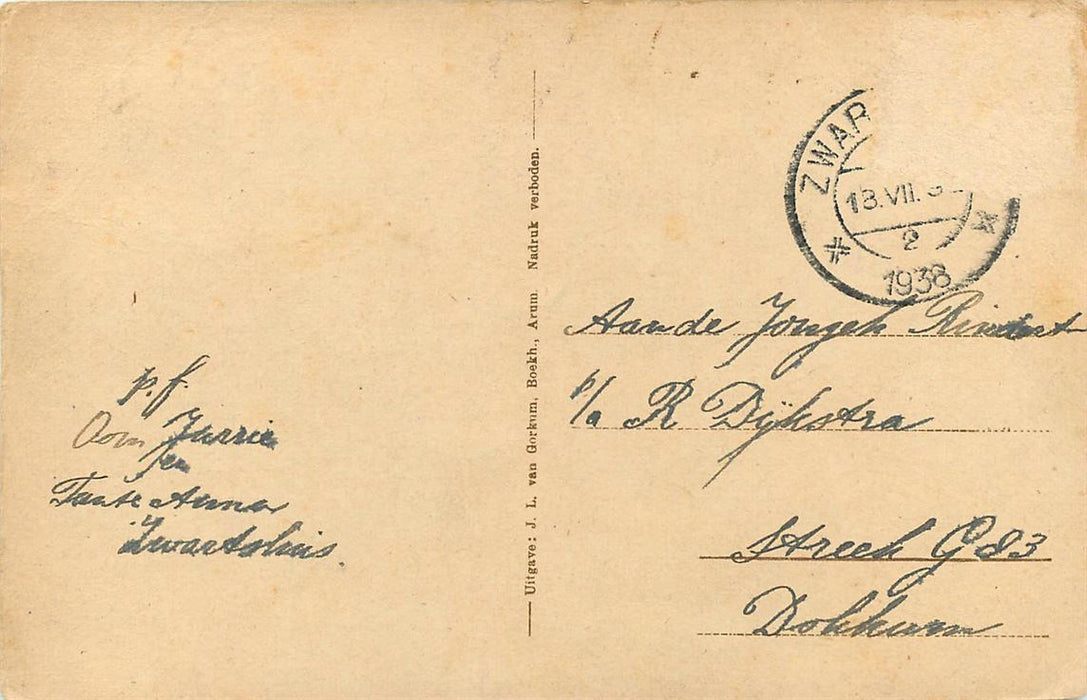 p.f.
Oom Jarrie
en
Tante Anna
Zwartsluis.
Uitgave: J. L. van Gorkum, Boekh., Arum. Nadruk verboden.
ZWAR
18.VII.3
2
1938
Aan de Jongeh
p/a R Dijkstra
Streek G83
Dokkum